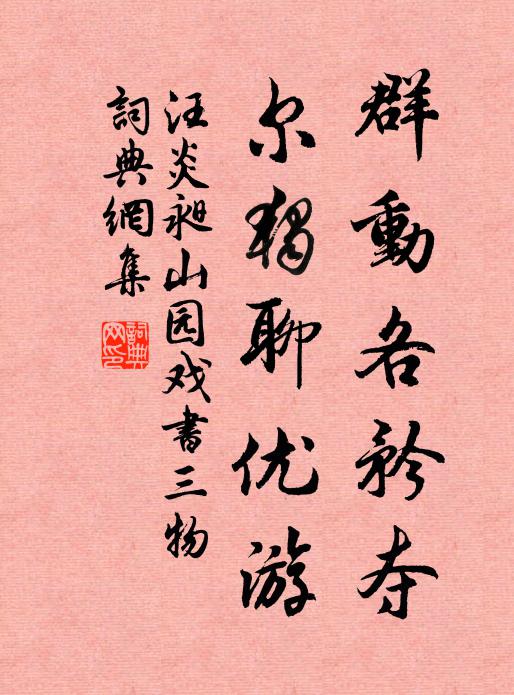 群動各矜夺
尔獨聊优游
汪炎昶山园戏書三物
詞典網集
詞典網印